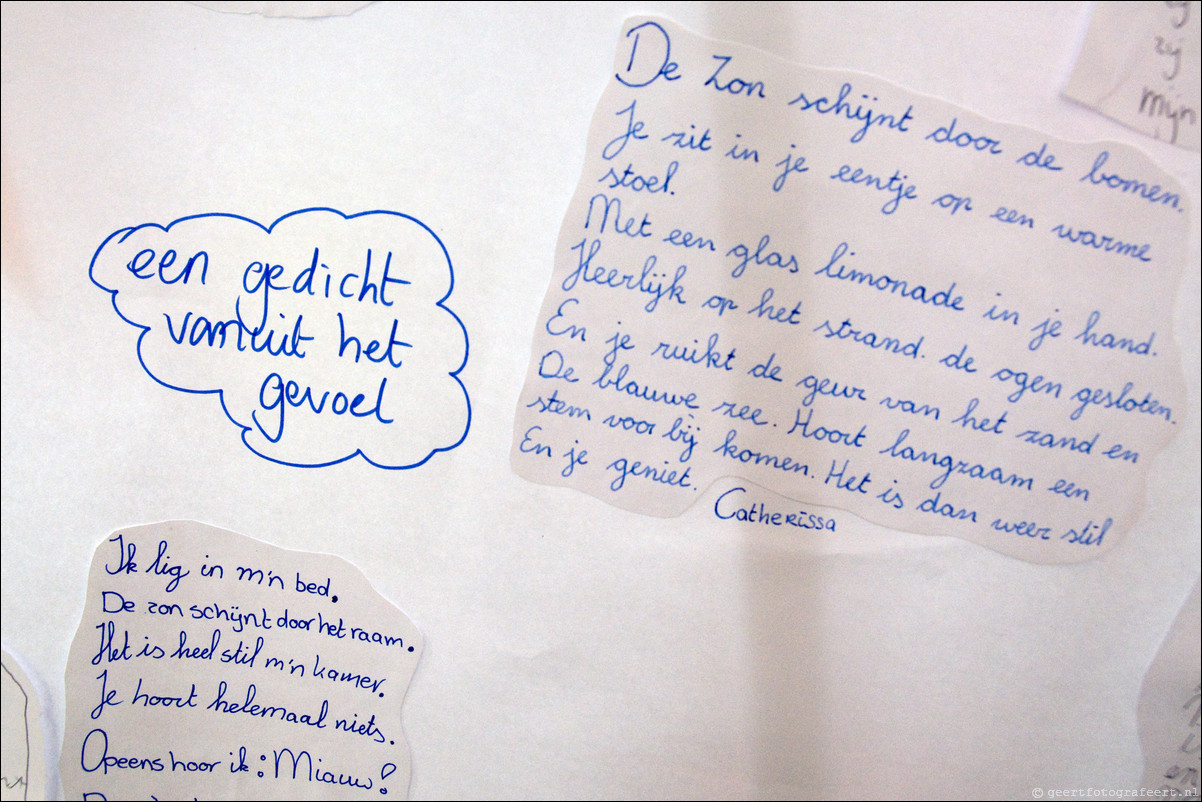 een gedicht
vanuit het
gevoel
De Zon schijnt door de bomen.
Je zit in je eentje op een warme
stoel.
Met een glas limonade in je hand.
Heerlijk op het strand. de ogen gesloten.
En je ruikt de geur van het zand en
De blauwe zee. Hoort langzaam een
stem voor bij komen. Het is dan weer stil
En je geniet.
Catherissa
Ik lig in m'n bed.
De zon schijnt door het raam.
Het is heel stil m'n kamer.
Je hoort helemaal niets.
Opeens hoor ik: Miauw!
zij
mijn
en
© geertfotografeert.nl